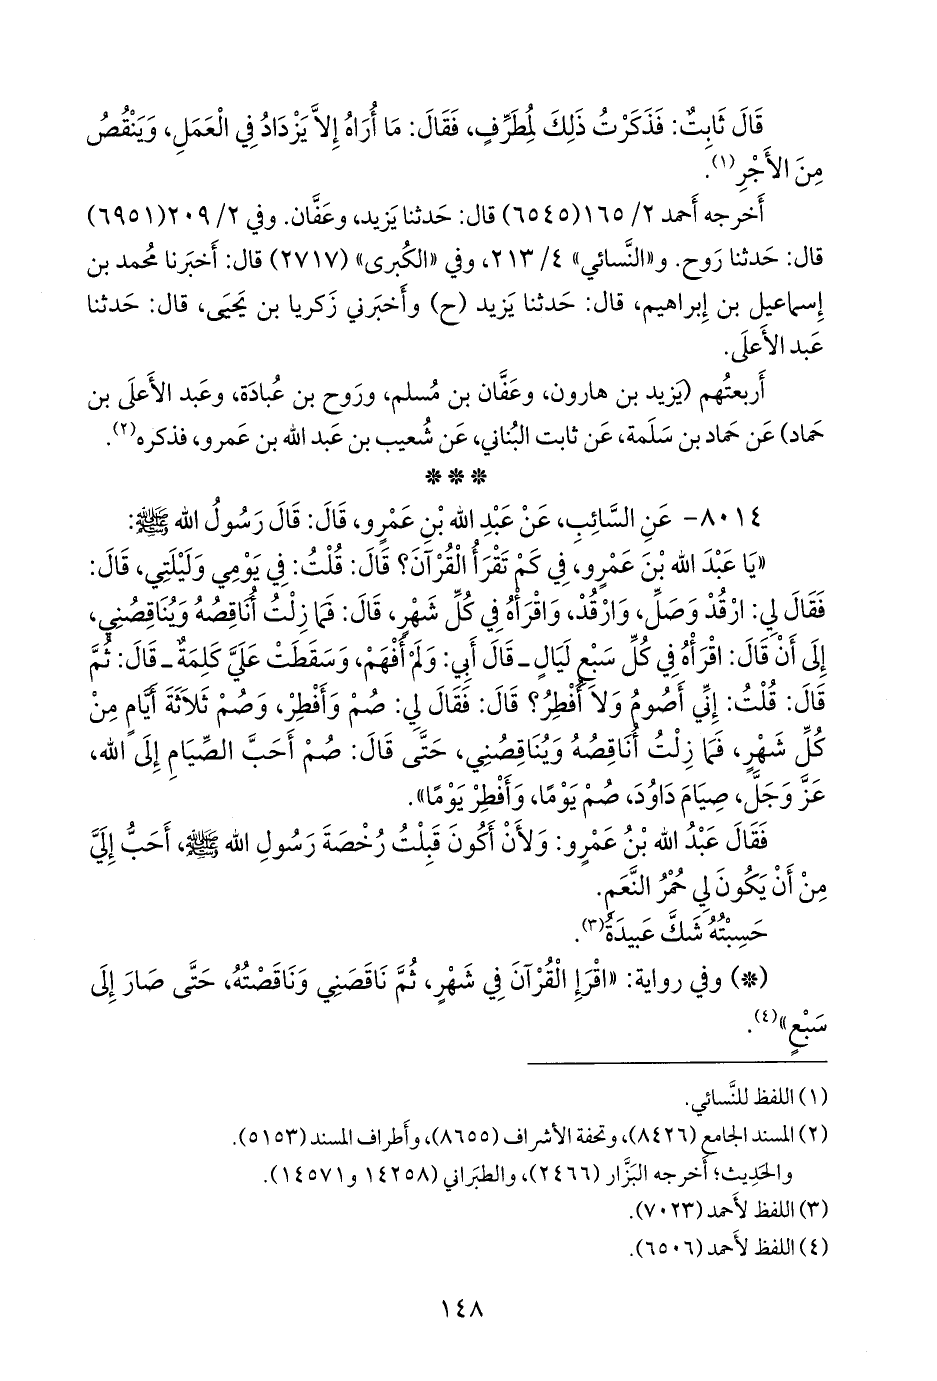 قَالَ ثَابِتٌ: فَذَكَرْتُ ذَلِكَ لِمُطَرِّفٍ، فَقَالَ: مَا أُرَاهُ إِلاَّ يَزْدَادُ فِي الْعَمَلِ، وَيَنْقُصُ
مِنَ الأَجْرِ(١).
أَخرجه أَحمد ٢/ ١٦٥(٦٥٤٥) قال: حَدثنا يَزيد، وعَفَّان. وفي ٢/ ٢٠٩(٦٩٥١)
قال: حَدثنا رَوح. و«النَّسائي» ٤/ ٢١٣، وفي «الكُبرى» (٢٧١٧) قال: أَخبَرنا مُحمد بن
إِسماعيل بن إِبراهيم، قال: حَدثنا يَزيد (ح) وأَخبَرني زَكريا بن يَحيَى، قال: حَدثنا
عَبد الأَعلَى.
أَربعتُهم (يَزيد بن هارون، وعَفَّان بن مُسلم، ورَوح بن عُبادَة، وعَبد الأَعلى بن
حَماد) عَن حَماد بن سَلَمة، عَن ثابت البُناني، عَن شُعيب بن عَبد الله بن عَمرو، فذكره(٢).
***
٨٠١٤- عَنِ السَّائِبِ، عَنْ عَبْدِ الله بْنِ عَمْرٍو، قَالَ: قَالَ رَسُولُ الله ﷺ:
«يَا عَبْدَ الله بْنَ عَمْرٍو، فِي كَمْ تَقْرَأُ الْقُرْآنَ؟ قَالَ: قُلْتُ: فِي يَوْمِي وَلَيْلَتِي، قَالَ:
فَقَالَ لِي: ارْقُدْ وَصَلِّ، وَارْقُدْ، وَاقْرَأْهُ فِي كُلِّ شَهْرٍ، قَالَ: فَمَا زِلْتُ أُنَاقِصُهُ وَيُنَاقِصُنِي،
إِلَى أَنْ قَالَ: اقْرَأْهُ فِي كُلِّ سَبْعِ لَيَالٍ ـ قَالَ أَبِي: وَلَمْ أَفْهَمْ، وَسَقَطَتْ عَلَيَّ كَلِمَةٌ ـ قَالَ: ثُمَّ
قَالَ: قُلْتُ: إِنِّي أَصُومُ وَلاَ أُفْطِرُ؟ قَالَ: فَقَالَ لِي: صُمْ وَأَفْطِرْ، وَصُمْ ثَلاَثَةَ أَيَّامٍ مِنْ
كُلِّ شَهْرٍ، فَمَا زِلْتُ أُنَاقِصُهُ وَيُنَاقِصُنِي، حَتَّى قَالَ: صُمْ أَحَبَّ الصِّيَامِ إِلَى الله،
عَزَّ وَجَلَّ، صِيَامَ دَاوُدَ، صُمْ يَوْمًا، وَأَفْطِرْ يَوْمًا».
فَقَالَ عَبْدُ الله بْنُ عَمْرٍو: وَلأَنْ أَكُونَ قَبِلْتُ رُخْصَةَ رَسُولِ الله ﷺ، أَحَبُّ إِلَيَّ
مِنْ أَنْ يَكُونَ لِي حُمْرُ النَّعَمِ.
حَسِبْتُهُ شَكَّ عَبِيدَةُ(٣).
(*) وفي رواية: «اقْرَإِ الْقُرْآنَ فِي شَهْرٍ، ثُمَّ نَاقَصَنِي وَنَاقَصْتُهُ، حَتَّى صَارَ إِلَى
سَبْعٍ»(٤).
(١) اللفظ للنَّسائي.
(٢) المسند الجامع (٨٤٢٦)، وتحفة الأشراف (٨٦٥٥)، وأَطراف المسند (٥١٥٣).
والحَدِيث؛ أَخرجه البَزَّار (٢٤٦٦)، والطبَراني (١٤٢٥٨ و١٤٥٧١).
(٣) اللفظ لأَحمد (٧٠٢٣).
(٤) اللفظ لأَحمد (٦٥٠٦).
١٤٨